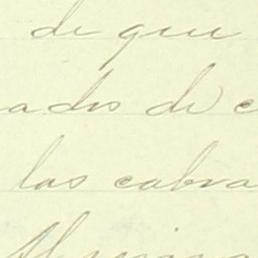 de que
ados de c
las cabra